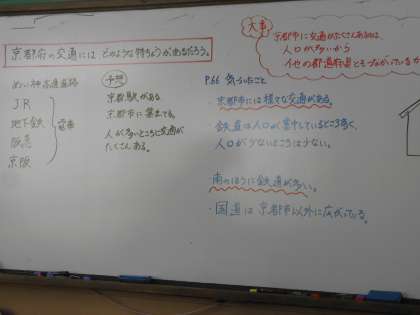 京都府の交通には、どのような特ちょうがあるだろう。
大事
京都市に交通がたくさんあるのは、
人口が多いから
他の都道府県ともつながっているか
めい神高速道路
JR
地下鉄
阪急
京阪
電車
予想
京都駅がある
京都市に集まってる。
人が多いところに交通が
たくさんある。
P.66 気づいたこと
・京都市には様々な交通がある。
・鉄道は人口が集中しているところ多く、
人口が少ないところは少ない。
南のほうに鉄道が多い。
・国道は京都市以外に広がっている。